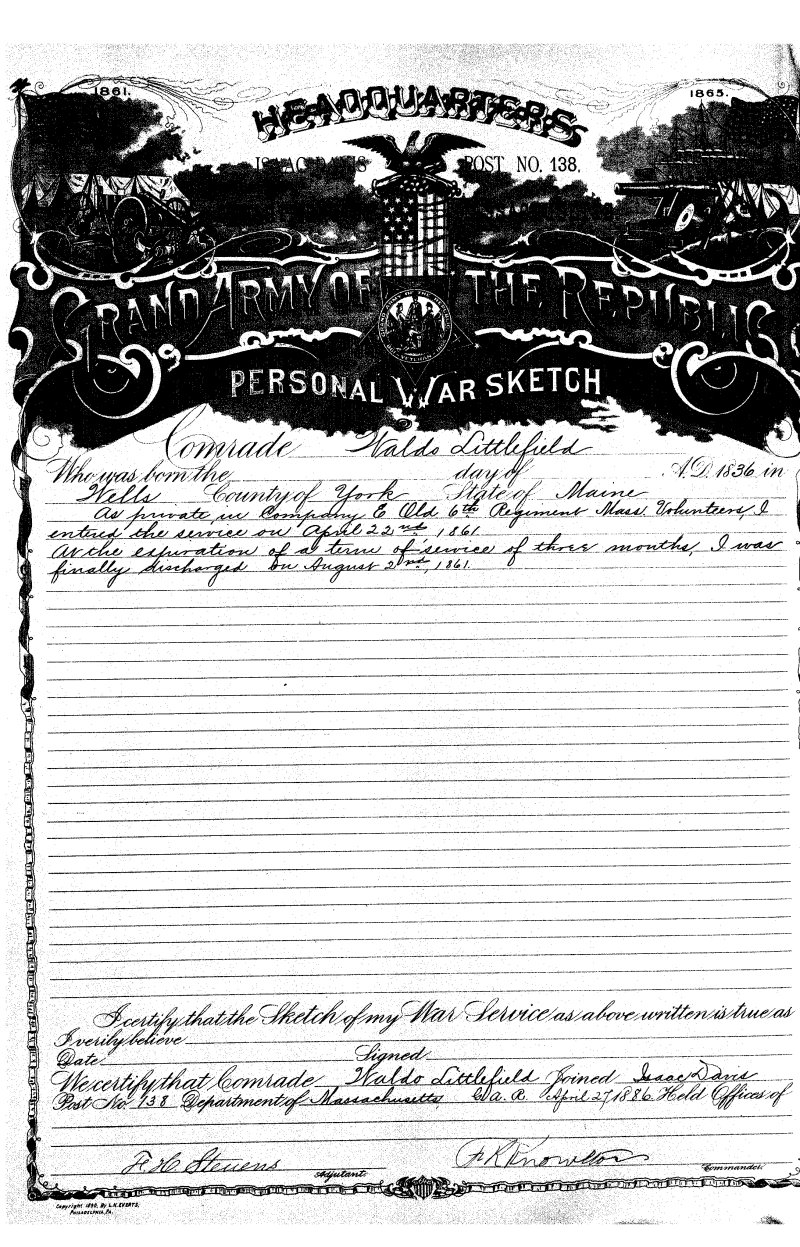 1861. 1865.
HEADQUARTERS
ISAAC DAVIS POST NO. 138.
GRAND ARMY OF THE REPUBLIC
PERSONAL WAR SKETCH
Comrade Waldo Littlefield
Who was born the day of A.D. 1836 in
Wells County of York State of Maine
As private in Company E Old 6th Regiment Mass. Volunteers, I
entered the service on April 22nd, 1861.
At the expiration of a term of service of three months, I was
finally discharged on August 2nd, 1861.
I certify that the Sketch of my War Service as above written is true as
I verily believe
Date Signed
We certify that Comrade Waldo Littlefield Joined Isaac Davis
Post No. 138 Department of Massachusetts G. A. R. April 27, 1886 Held Offices of
F. H. Stevens F K Knowlton
Adjutant. Commander.
Copyright 1890, By L.H. EVERTS,
PHILADELPHIA, PA.